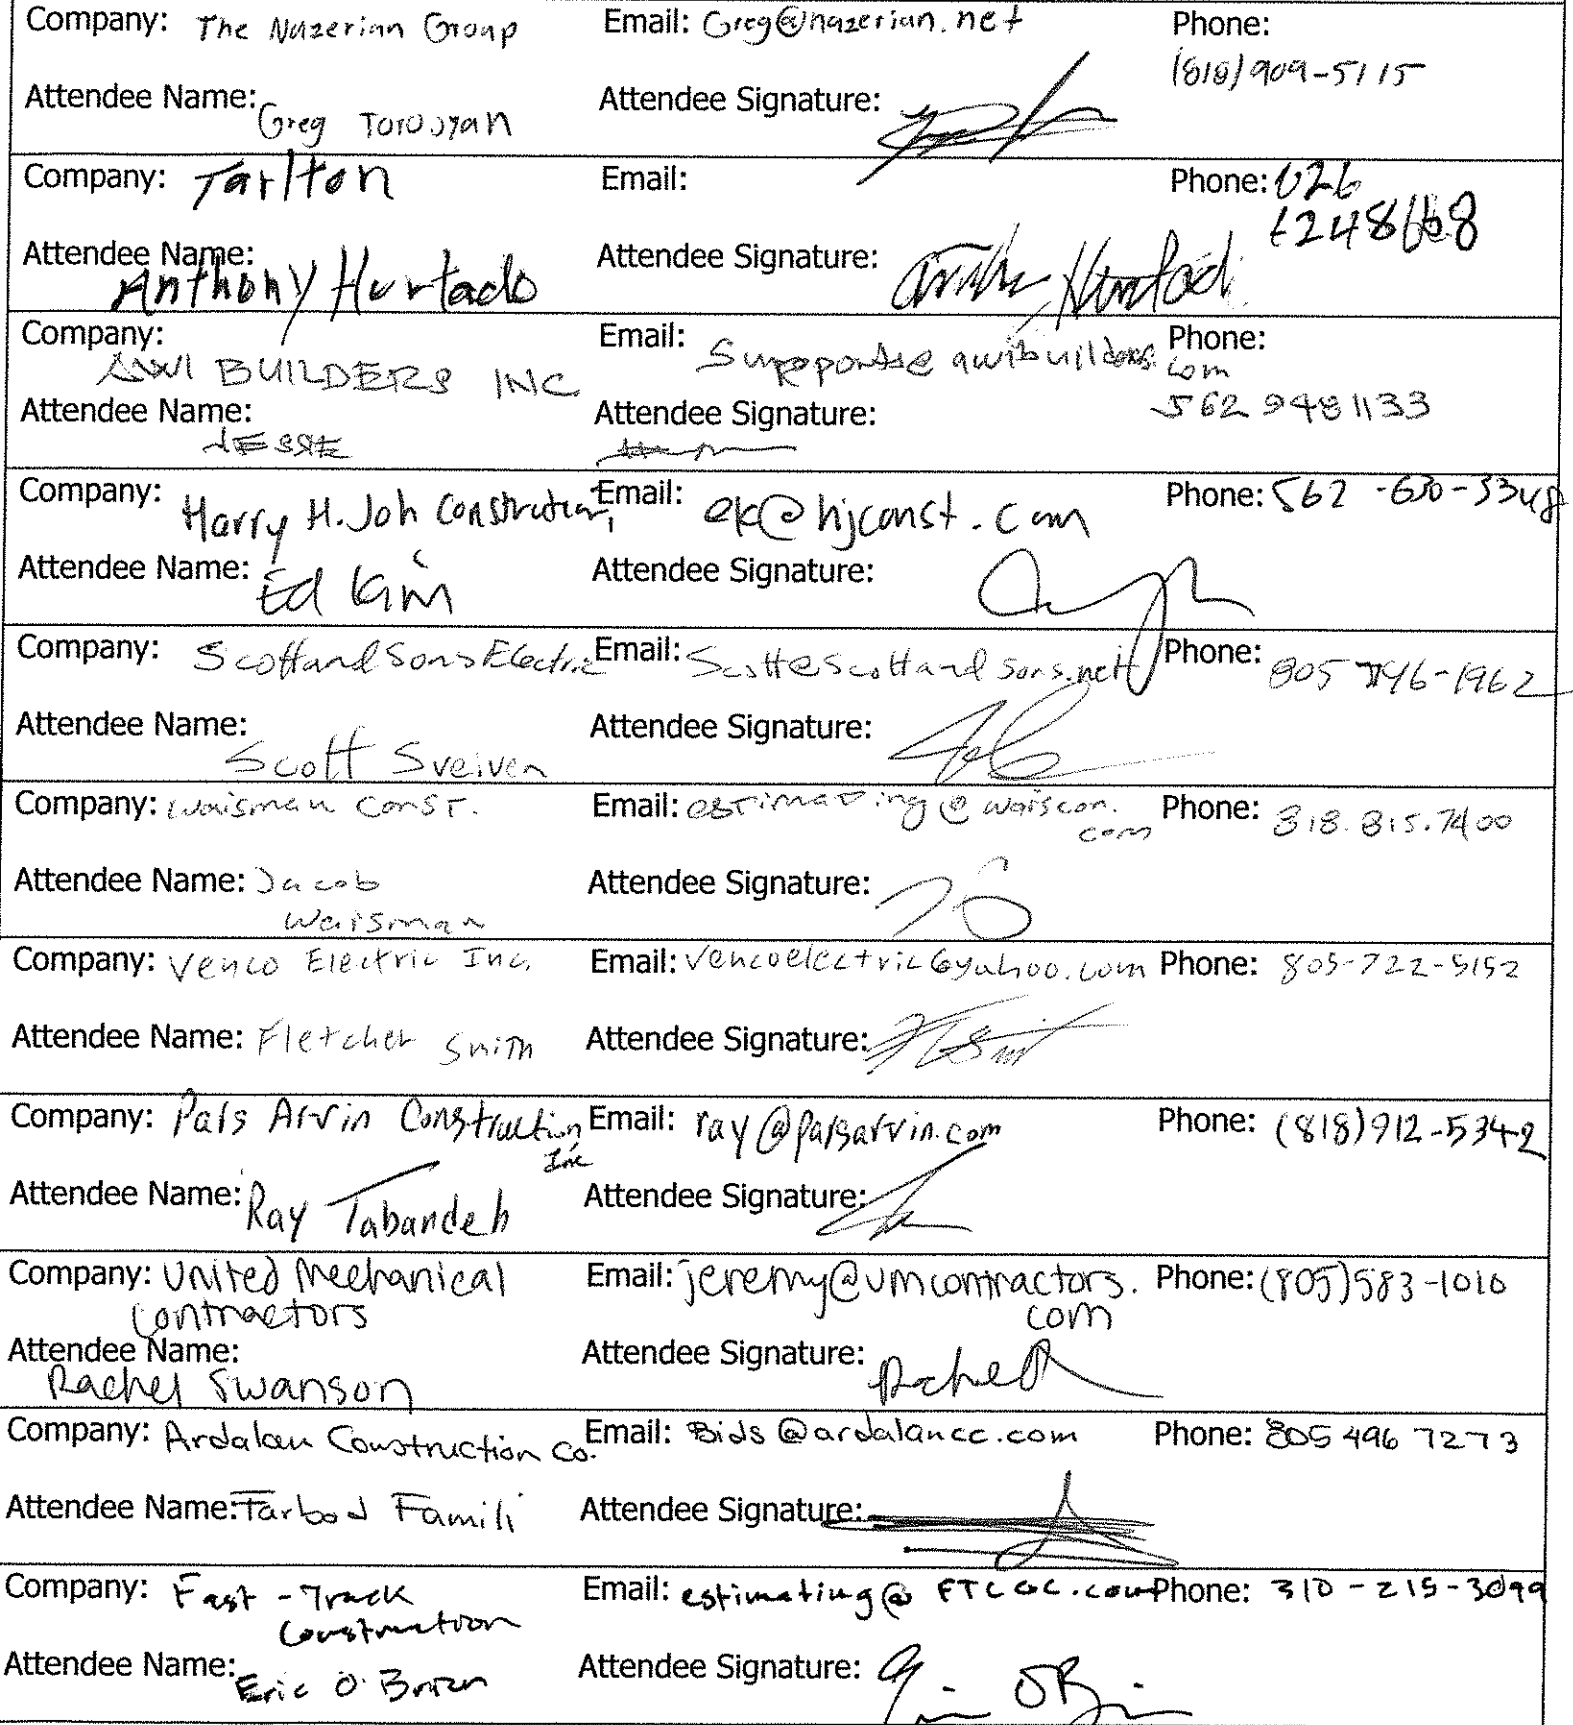 Company: The Nazerian Group Email: Greg@nazerian.net Phone:
(818) 909-5115
Attendee Name: Greg Torosyan Attendee Signature:
Company: Tarlton Email: Phone: 626
Attendee Name: Anthony Hurtado Attendee Signature:
Company: AWI BUILDERS INC Email: awibuilders.com Phone:
562 948 1133
Attendee Name: JESSE Attendee Signature:
Company: Harry H. Joh Construction, Email: ek@hjconst.com Phone: 562 -630-3348
Attendee Name: Ed Kim Attendee Signature:
Company: Scott and Sons Electric Email: Scott@scottandsons.net Phone: 805
Attendee Name: Scott Sveiven Attendee Signature:
Company: Waisman Const. Email: estimating@waiscon.com Phone: 818.815.7400
Attendee Name: Jacob
Waisman Attendee Signature:
Company: Venco Electric Inc. Email: Vencoelectric@yahoo.com Phone: 805-722-5152
Attendee Name: Fletcher Smith Attendee Signature:
Company: Pars Arvin Construction Email: ray@parsarvin.com Phone: (818)912-5342
Inc
Attendee Name: Ray Tabandeh Attendee Signature:
Company: United Mechanical Email: jeremy@umcontractors. Phone: (805)583-1010
Contractors com
Attendee Name: Attendee Signature: Rachel
Rachel Swanson
Company: Ardalan Construction Co. Email: Bids@ardalancc.com Phone: 805 496 7273
Attendee Name: Tarbod Famili Attendee Signature:
Company: Fast-Track Email: estimating@FTCGC.com Phone: 310-215-3099
Construction
Attendee Name: Eric O'Brien Attendee Signature: